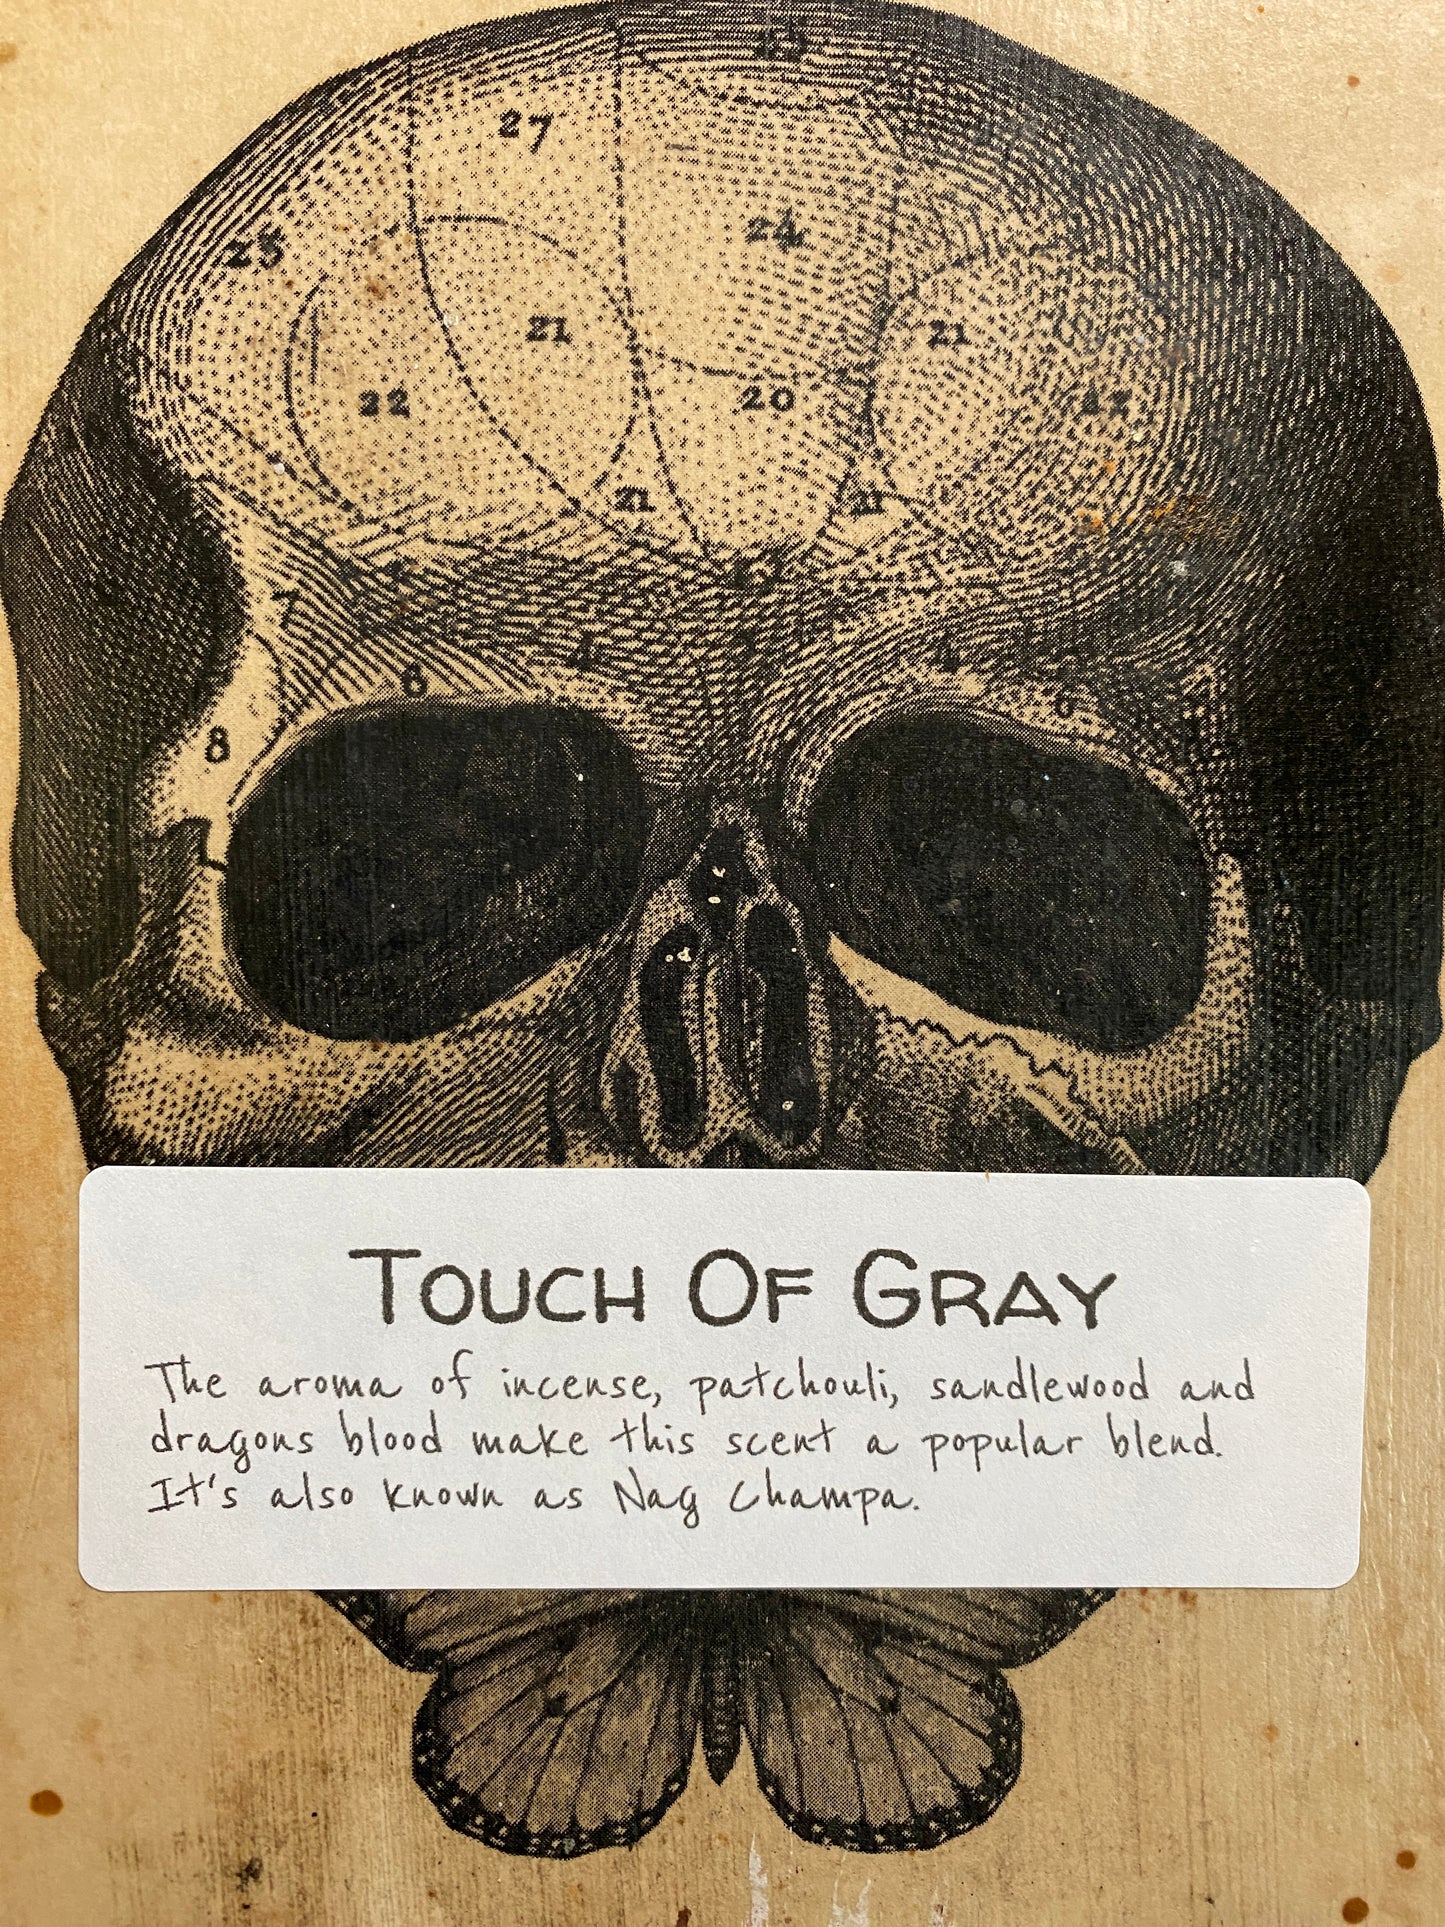 27
24
21
21
22
20
21
21
7
4
4
6
6
8
TOUCH OF GRAY
The aroma of incense, patchouli, sandlewood and
dragons blood make this scent a popular blend.
It's also known as Nag Champa.